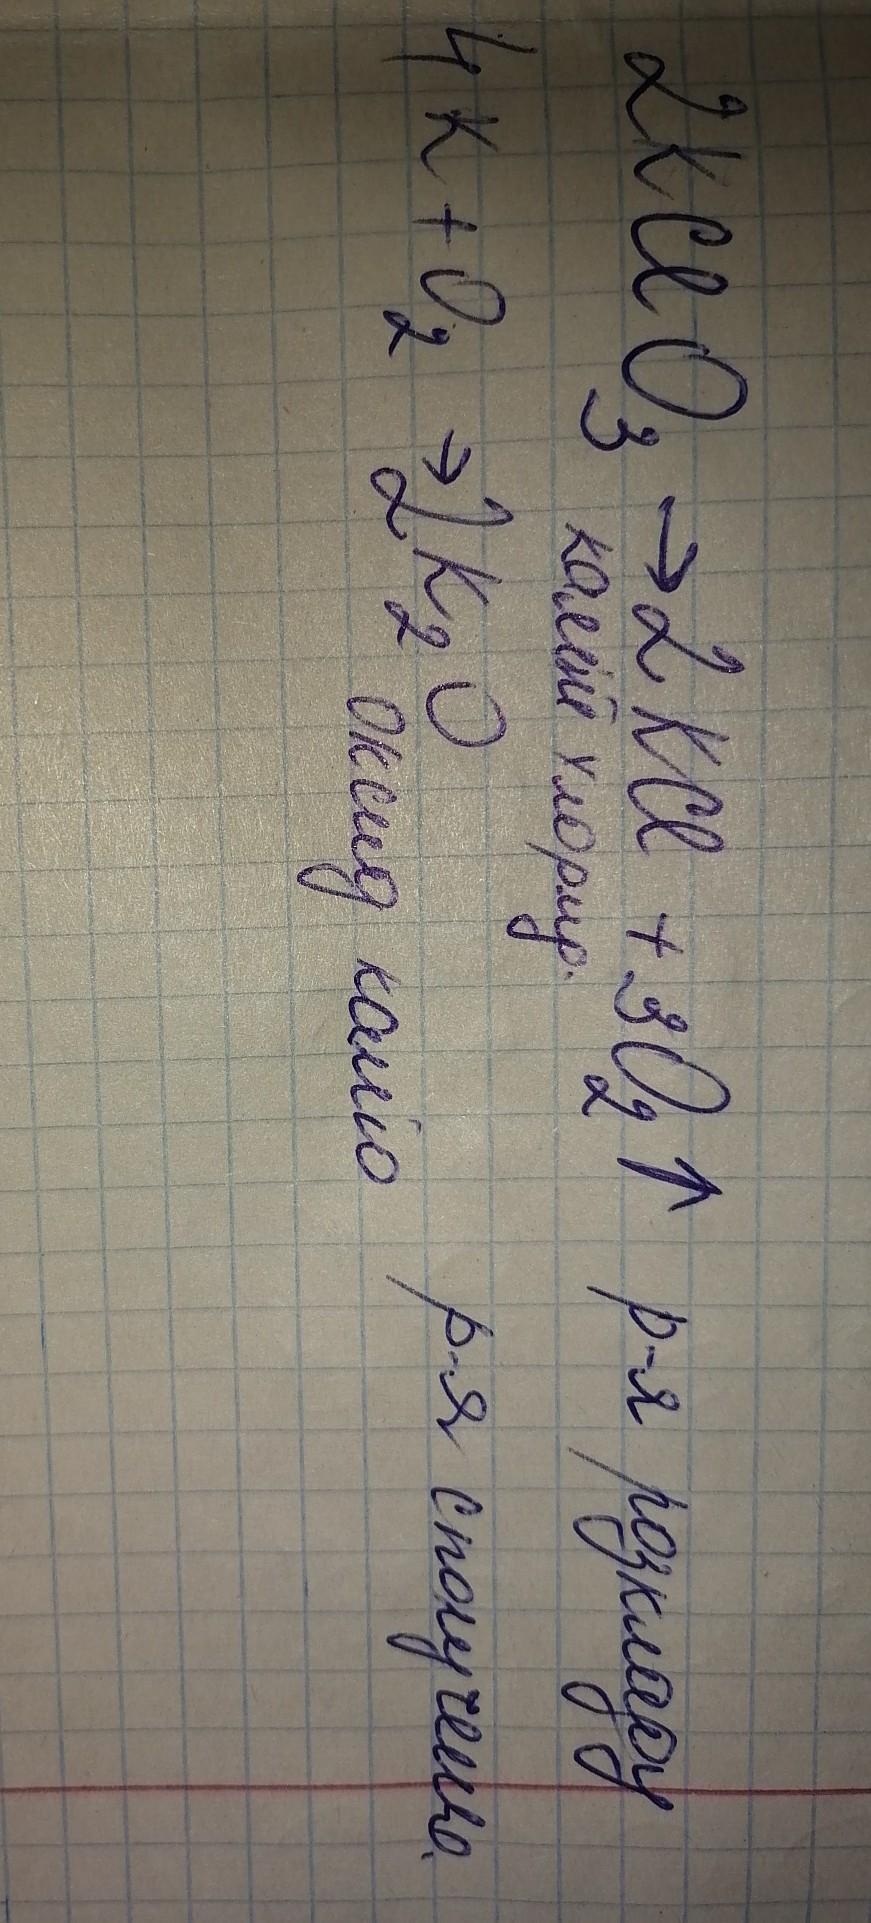 2KClO₃ → 2KCl + 3O₂↑ р-я розкладу
калій хлорид.
4K + O₂ → 2K₂O р-я сполучення.
оксид калію